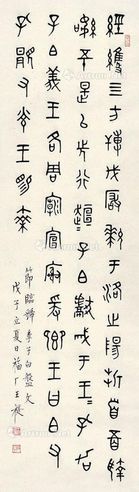 經維四方搏伐玁狁于洛之陽折首五百執
訊五十是以先行桓桓子白獻馘于王王孔加
子白義王各周廟宣榭爰鄉王曰白父
孔顯又光王賜乘
節臨虢季子白盤文
戊子立夏日福厂王禔